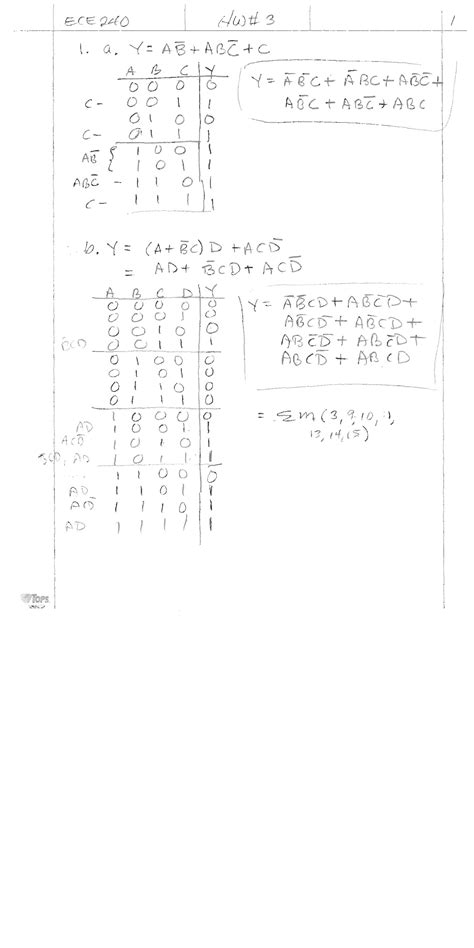 ECE 240 HW# 3 1
1. a. Y = AB̅ + ABC̅ + C
A B C Y
0 0 0 0
C- 0 0 1 1
0 1 0 0
C- 0 1 1 1
AB̅ { 1 0 0 1
1 0 1 1
ABC̅ - 1 1 0 1
C- 1 1 1 1
Y = A̅B̅C + A̅BC + AB̅C̅ +
AB̅C + ABC̅ + ABC
b. Y = (A + B̅C) D + ACD̅
= AD + B̅CD + ACD̅
A B C D Y
0 0 0 0 0
0 0 0 1 0
0 0 1 0 0
B̅CD 0 0 1 1 1
0 1 0 0 0
0 1 0 1 0
0 1 1 0 0
0 1 1 1 0
1 0 0 0 0
AD 1 0 0 1 1
ACD̅ 1 0 1 0 1
AD 1 0 1 1 1
1 1 0 0 0
AD 1 1 0 1 1
1 1 1 0 1
AD 1 1 1 1 1
Y = A̅B̅CD + AB̅C̅D +
AB̅CD̅ + AB̅CD +
+ ABC̅D +
ABCD̅ + ABCD
= Σm (3, 9, 10,
13, 14, 15)
TOPS